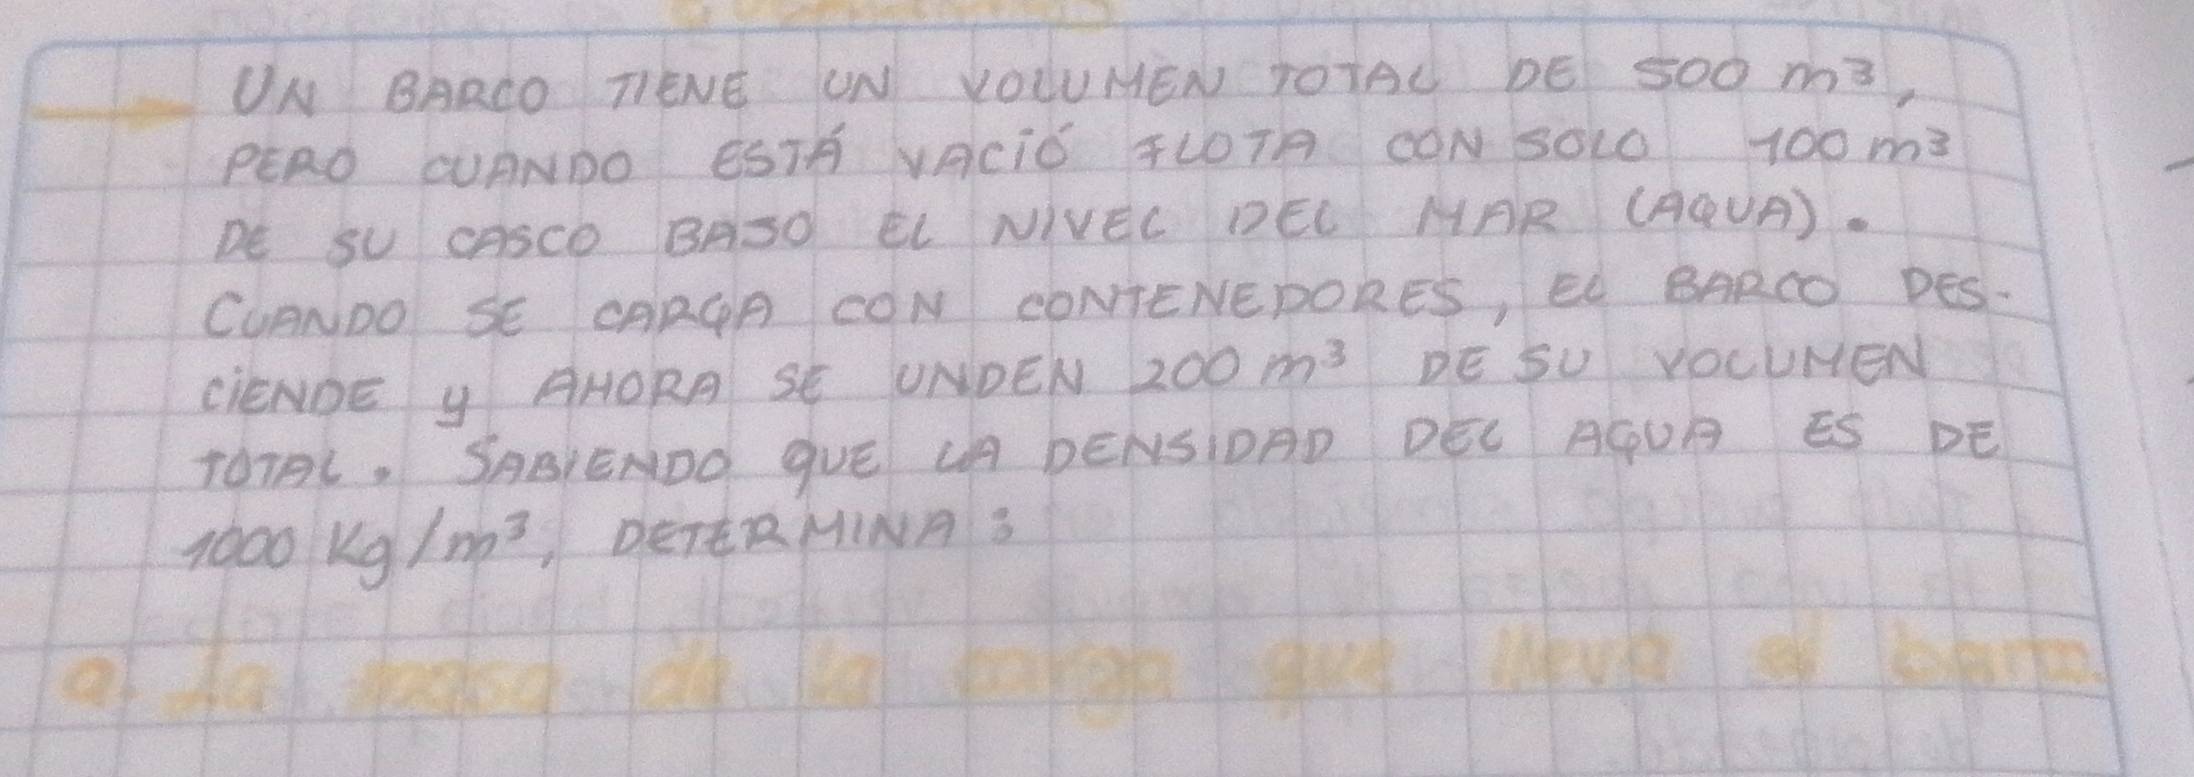 UN BARCO TIENE UN VOLUMEN TOTAL DE 500 m³,
PERO CUANDO ESTÁ VACIÓ FLOTA CON SOLO 100 m³
DE SU CASCO BAJO EL NIVEL DEL MAR (AQUA).
CUANDO SE CARGA CON CONTENEDORES, EL BARCO DES-
CIENDE y AHORA SE UNDEN 200 m³ DE SU VOLUMEN
TOTAL. SABIENDO QUE LA DENSIDAD DEL AGUA ES DE
1000 Kg/m³, DETERMINA:
a. La masa de la carga que lleva el barco.